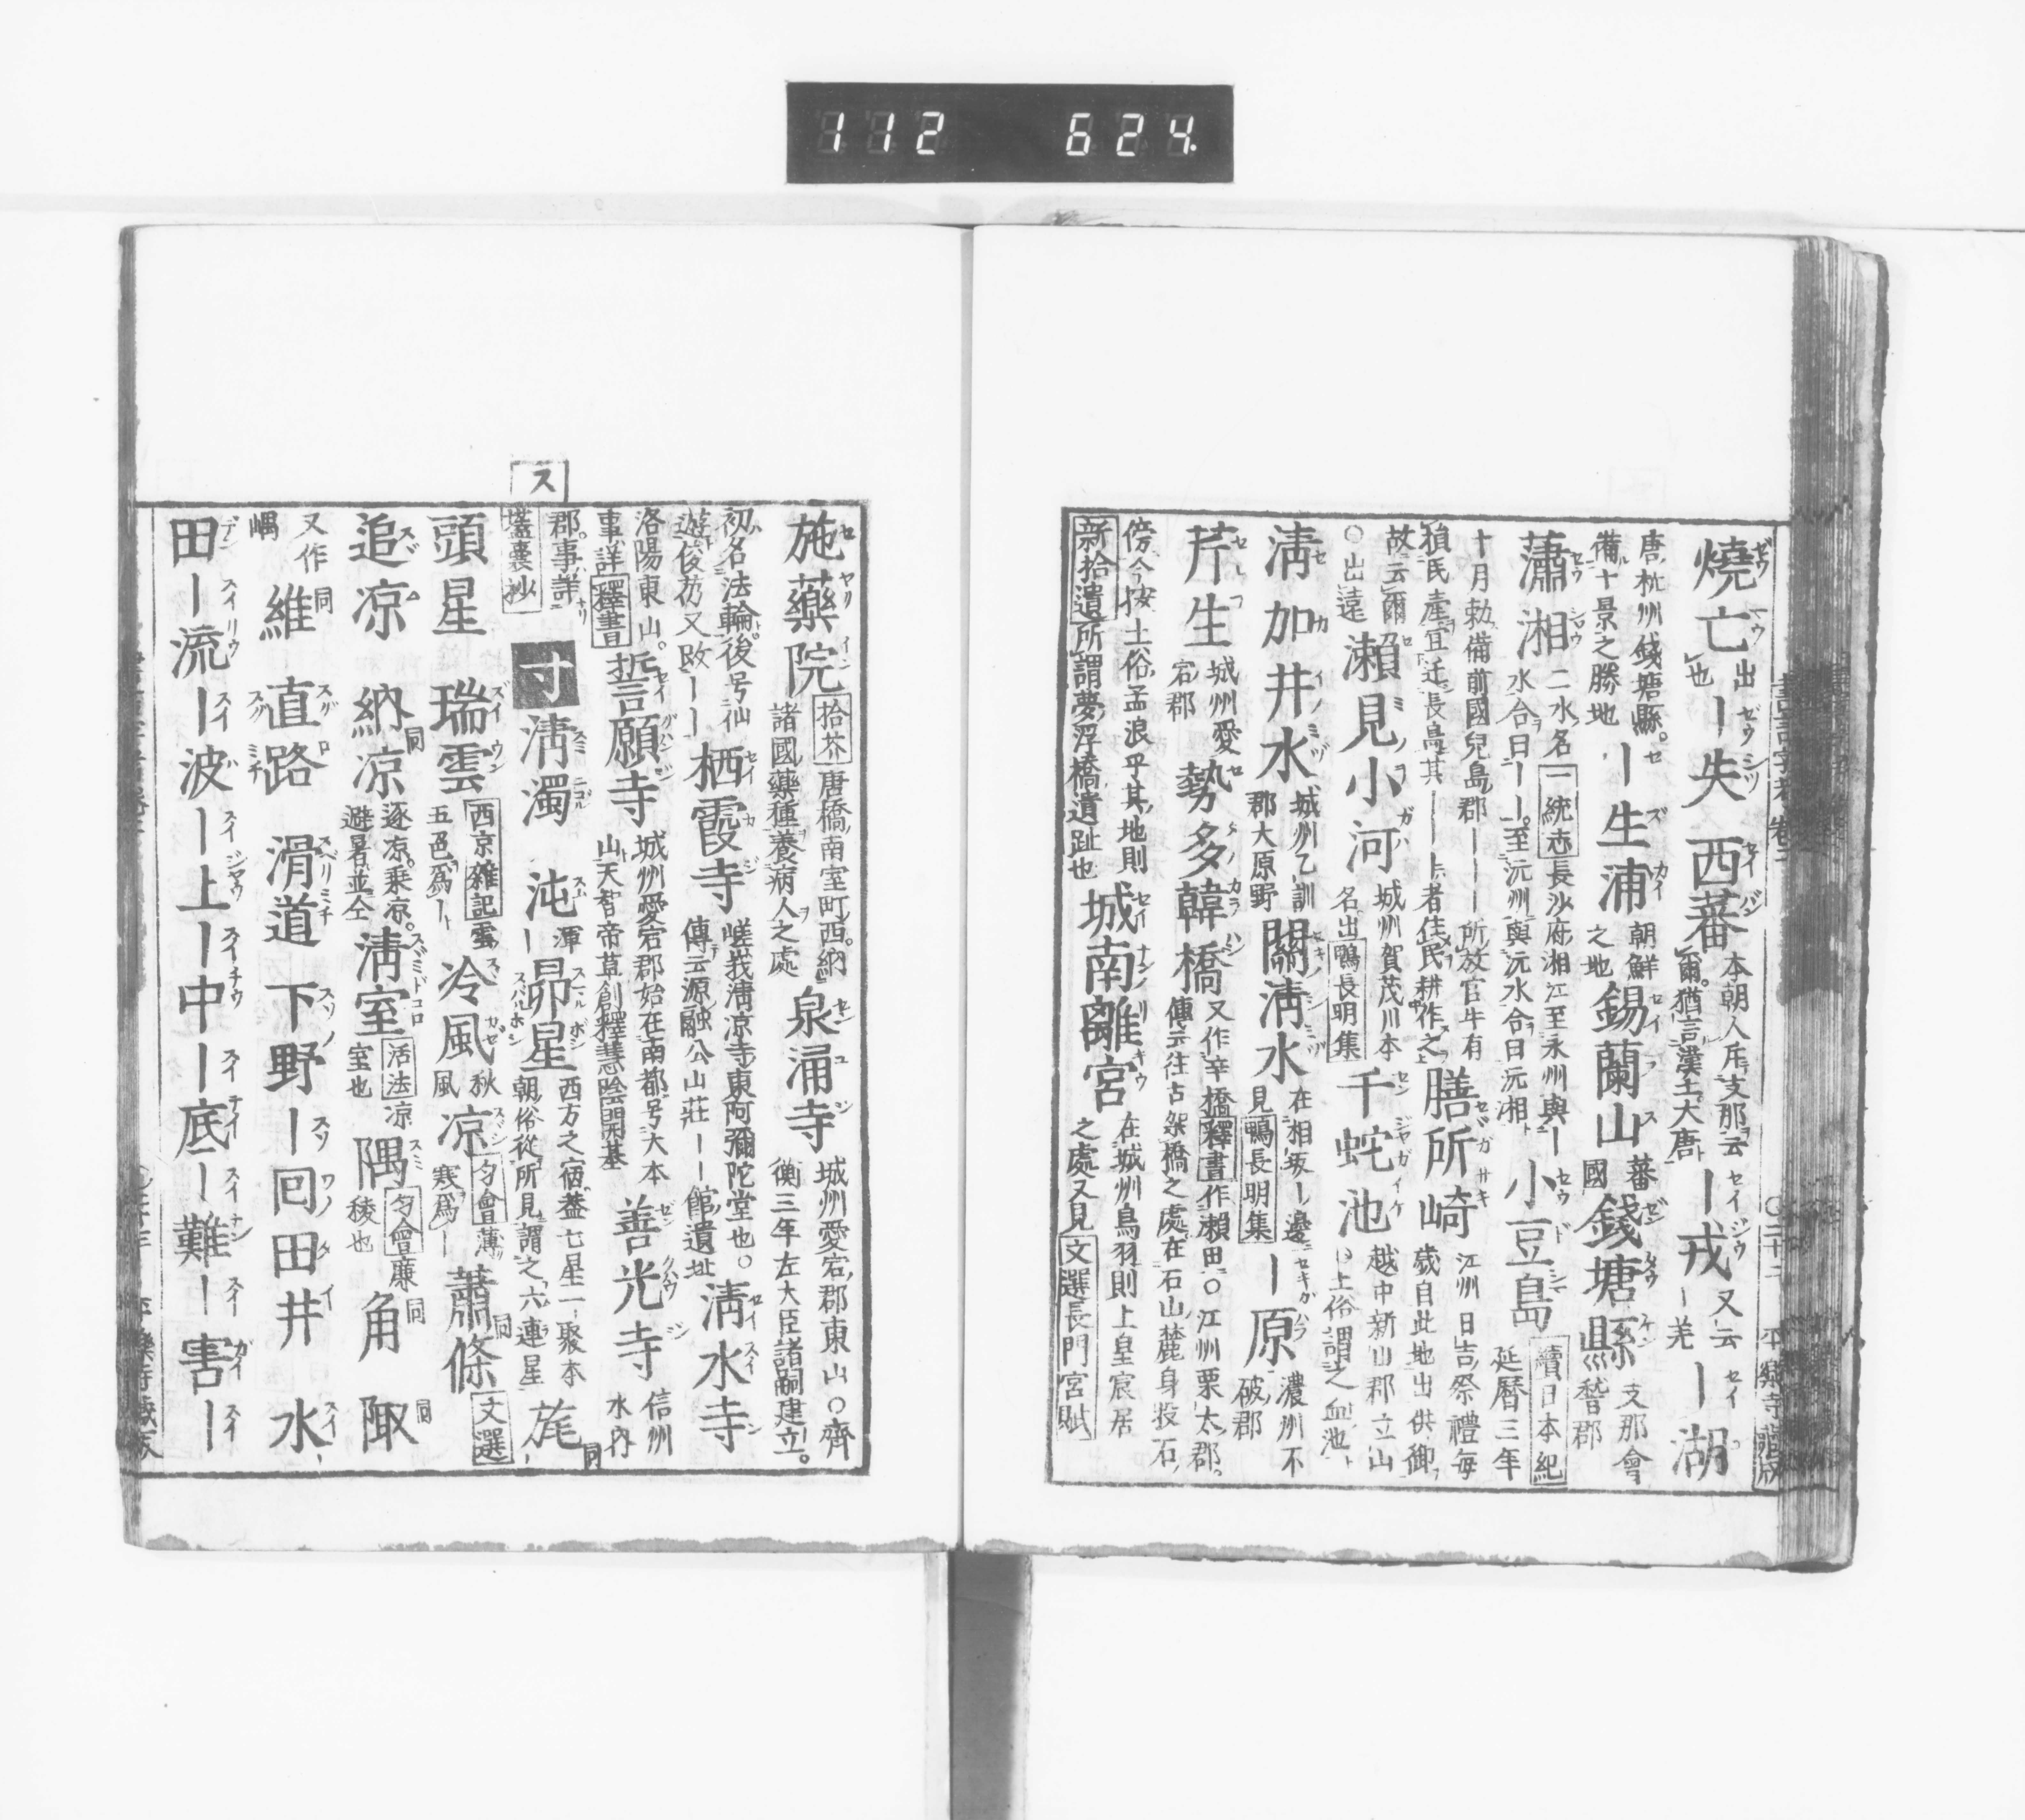 112 624
燒亡出也 ー失 西蕃本朝人斥支那云爾猶言漢土大唐 ー戎又云ー羌 ー湖
唐杭州錢塘縣備十景之勝地 ー生浦朝鮮之地 錫蘭山蕃國 錢塘縣支那會稽郡
瀟湘二水名一統志長沙府湘江至永州與ー水合曰ーー至沅州與沅水合曰沅湘 小豆島續日本紀延曆三年
十月勅備前國兒島郡ーーー所放官牛有損民產宜迁長島其ーー上者住民耕作之 膳所崎江州日吉祭禮每歲自此地出供御
故云爾○出遠 瀨見小河城州賀茂川本名出鴨長明集 千蛇池越中新山郡立山上俗謂之血池
淸加井水城州乙訓郡大原野 關淸水在相坂ー邊見鴨長明集 ー原濃州不破郡
芹生城州愛宕郡 勢多韓橋又作辛橋釋書作瀨田○江州栗太郡傳云往古架橋之處在石山麓身投石
傍今按土俗孟浪乎其地則新拾遺所謂夢浮橋遺趾也 城南離宮在城州鳥羽則上皇宸居之處又見文選長門宮賦
ス
施藥院拾芥唐橋南室町西納諸國藥種養病人之處 泉涌寺城州愛宕郡東山○齊衡三年左大臣諸嗣建立
初名法輪後号仙遊俊芿又改ーー 栖霞寺嵯峨淸凉寺東阿彌陀堂也○傳云源融公山莊ーー館遺址 淸水寺
洛陽東山事詳釋書 誓願寺城州愛宕郡始在南都号大本山天智帝草創釋慧隱開基 善光寺信州水內
郡事詳壒囊抄 寸 淸濁 沌渾ー 昴星西方之宿蓋七星一聚本朝俗從所見謂之六連星 旄同
頭星 瑞雲西京雜記雲五色爲ー 冷風秋風 凉匀會薄寒爲ー 蕭條同文選
追凉 納凉同逐凉乘凉避暑並仝 淸室活法凉室也 隅匀會廉稜也 角同 陬同
又作嵎 維同 直路 滑道 下野 ー回 田井 水
田ー流ー波ー上ー中ー底ー難ー害ー